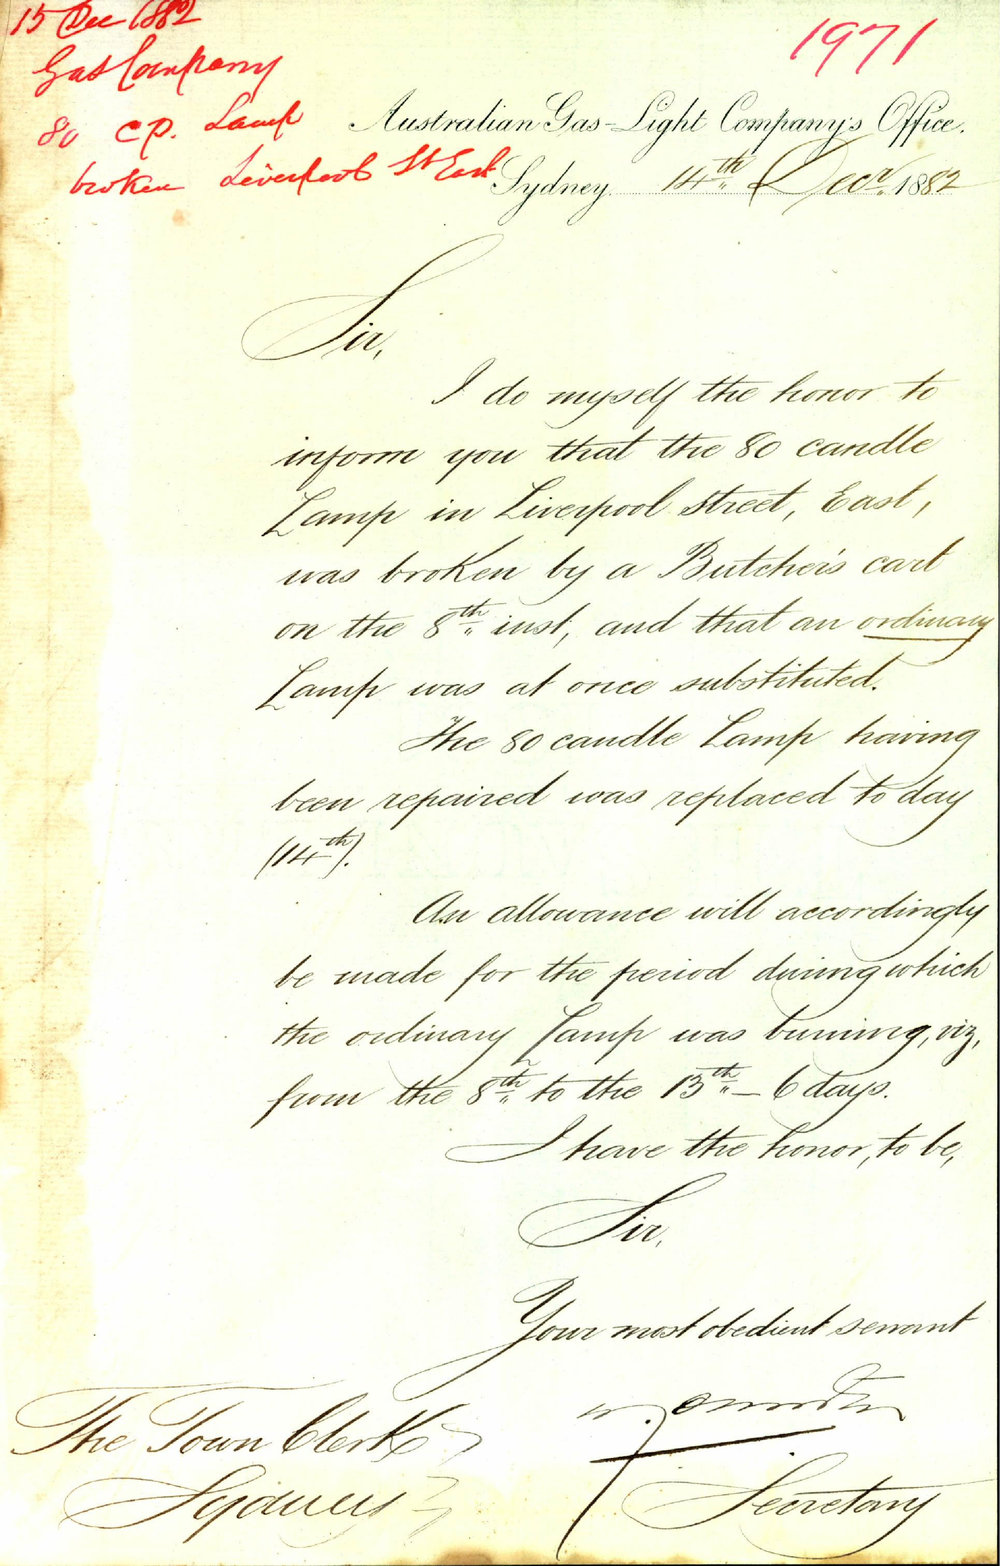 15 Dec 1882
Gas Company
80 C.P. Lamp
broken Liverpool St East
1971
Australian Gas-Light Company's Office.
Sydney 14th Decr. 1882
Sir,
I do myself the honor to
inform you that the 80 candle
Lamp in Liverpool Street, East,
was broken by a Butcher's cart
on the 8th inst, and that an ordinary
Lamp was at once substituted.
The 80 candle Lamp having
been repaired was replaced to day
(14th).
An allowance will accordingly
be made for the period during which
the ordinary Lamp was burning, viz,
from the 8th to the 13th – 6 days.
I have the honor, to be,
Sir,
Your most obedient servant
Secretary
The Town Clerk
Sydney